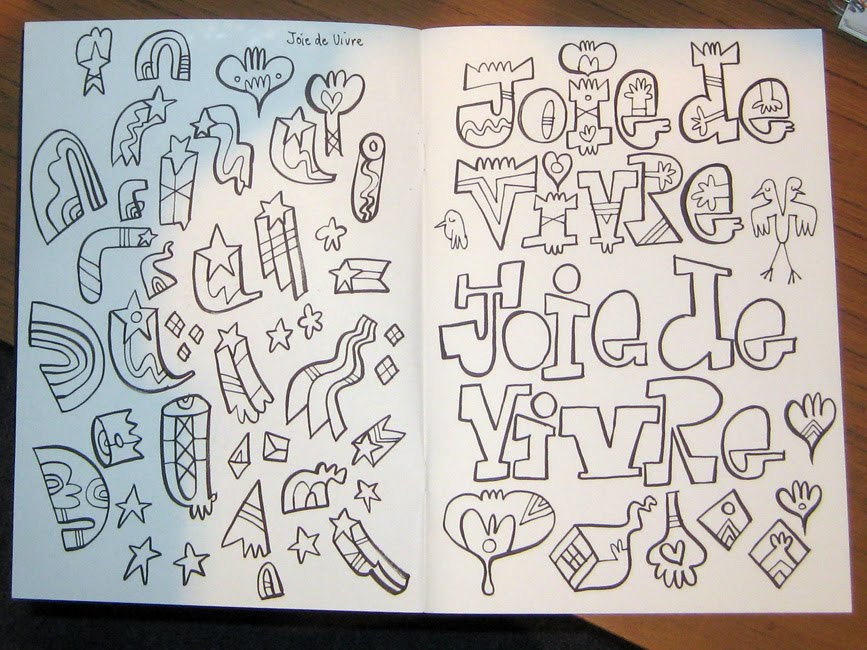 Joie de Vivre
Joie de
ViVRe
Joie de
ViVRe